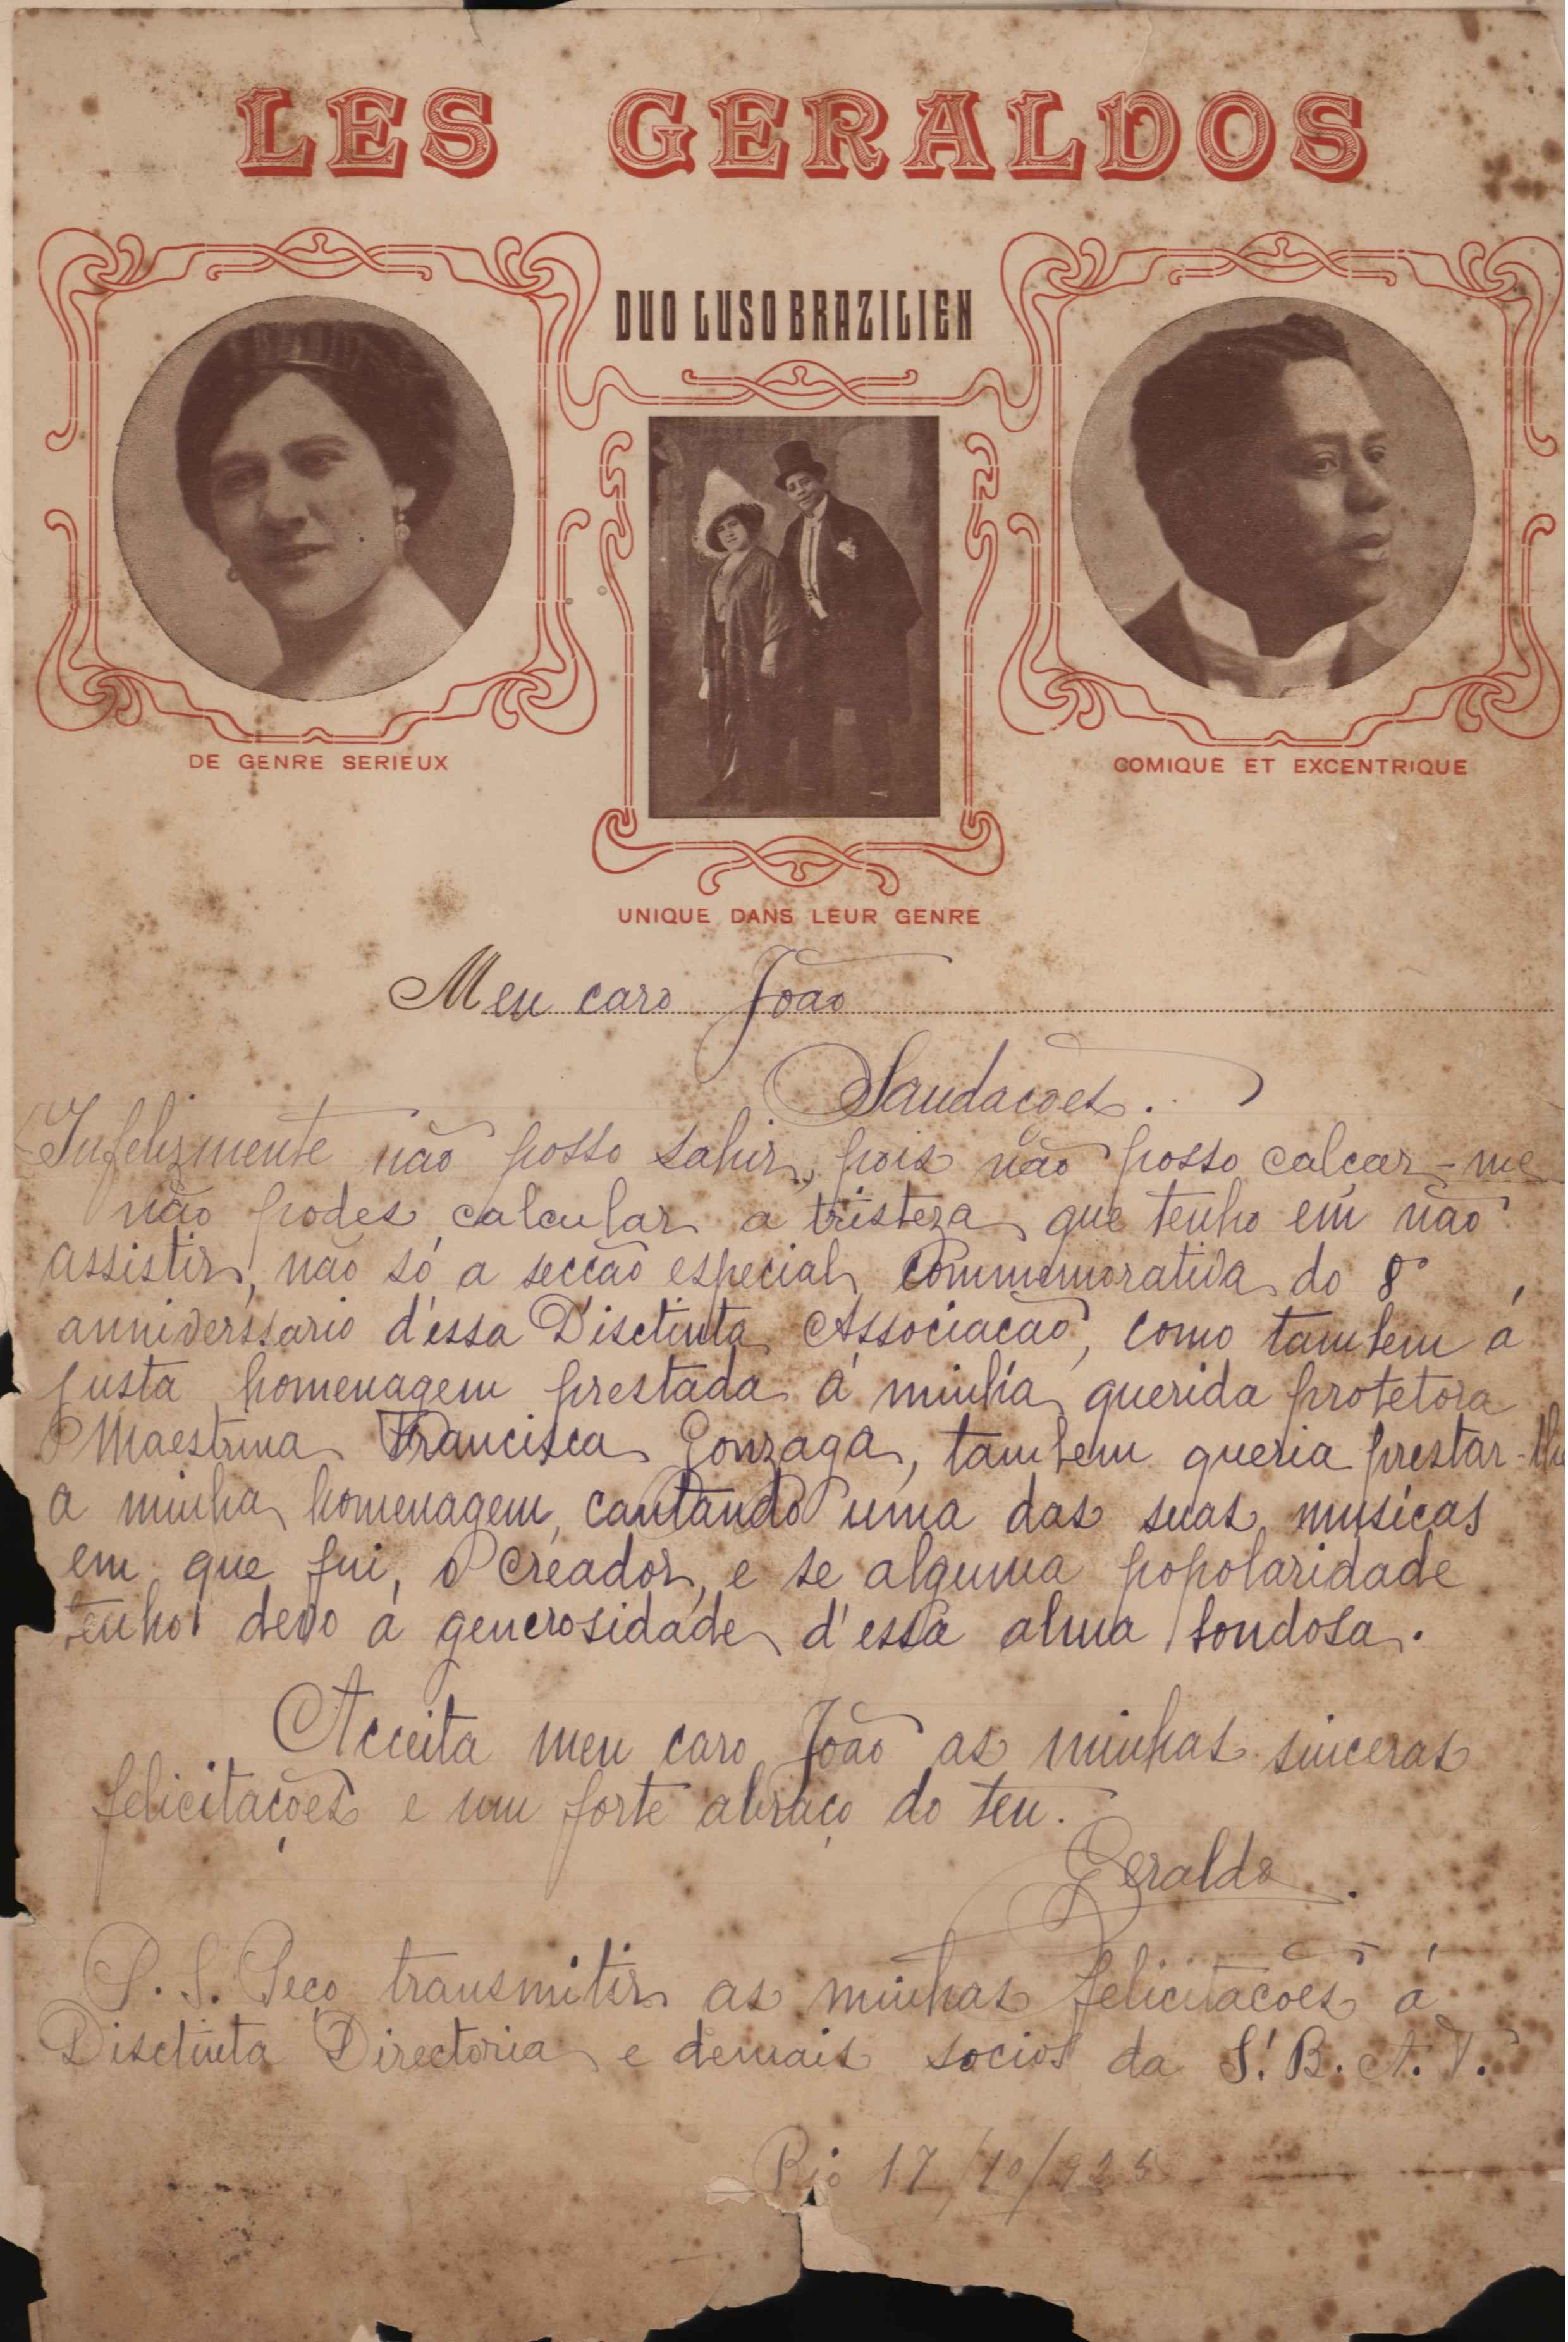 LES GERALDOS
DUO LUSO BRAZILIEN
DE GENRE SERIEUX
COMIQUE ET EXCENTRIQUE
UNIQUE DANS LEUR GENRE
Meu caro João
Saudações.
Infelizmente não posso sahir, pois não posso calcar-me
não podes calcular a tristeza que tenho em não
assistir, não só a secção especial commemorativa do 8º
anniverssario d'essa Disctinta Associacão, como tambem á
justa homenagem prestada á minha querida protetora
Maestrina Francisca Gonzaga, tambem queria prestar-lhe
a minha homenagem, cantando uma das suas musicas
em que fui, o creador, e se alguma popolaridade
tenho devo á generosidade d'essa alma bondosa.
Acceita meu caro João as minhas sinceras
felicitações e um forte abraço do teu.
Geraldo.
P.S. Peço transmitir as minhas felicitacões á
Disctinta Directoria e demais socios da S.B.A.T.
Rio 17/10/925